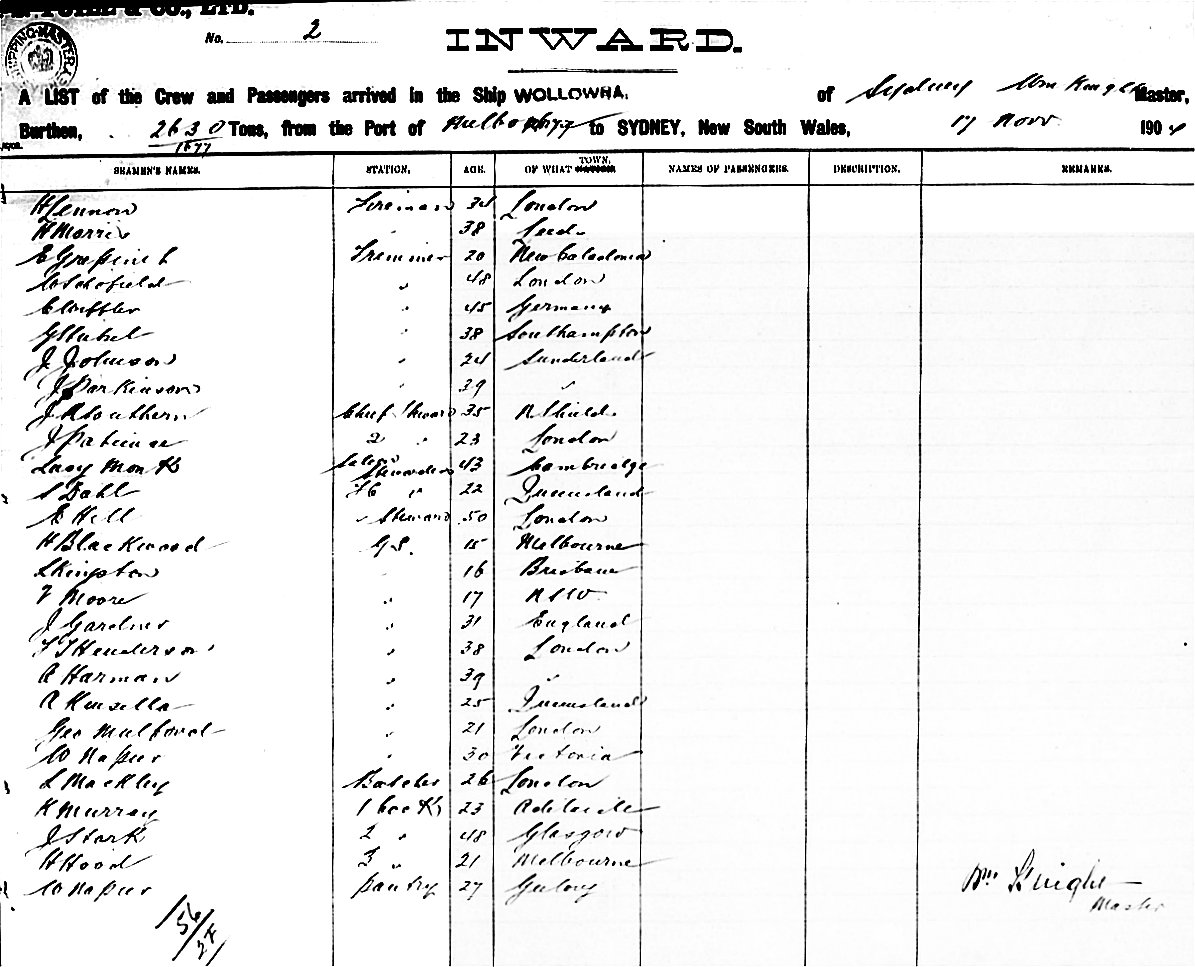 & CO., LTD.
SHIPPING MASTER
No. 2
INWARD.
A LIST of the Crew and Passengers arrived in the Ship WOLLOWRA, of Sydney Wm Knight Master,
Burthen, 2630 / 1677 Tons, from the Port of to SYDNEY, New South Wales, 17 Novr 1904
SEAMEN'S NAMES. STATION. AGE. OF WHAT TOWN. NAMES OF PASSENGERS. DESCRIPTION. REMARKS.
H Lennon Fireman 34 London
H Morris " 38 Leeds
E Trimmer 20 New Caledonia
W Schofield " 48 London
" 45 Germany
" 38 Southampton
J Johnson " 24 Sunderland
J Parkinson " 39 "
J R Southern Chief Steward 35 N Shields
J 2 " 23 London
Lucy Monk Saloon Stewardess 43 Cambridge
S Dahl " 22 Queensland
E Hill " Steward 50 London
H Blackwood G.S. 15 Melbourne
L Kingston " 16 Brisbane
F Moore " 17 NSW
J Gardner " 31 England
F J Henderson " 38 London
A Harman " 39 "
A Kinsella " 25 Queensland
Geo Mulford " 21 London
W Napier " 30 Victoria
L Mackley Butcher 26 London
K Murray 1 Cook 23 Adelaide
J Stark 2 " 48 Glasgow
H Hood 3 " 21 Melbourne
W Napier Pantry 27 Geelong
Wm Knight
Master
56/27